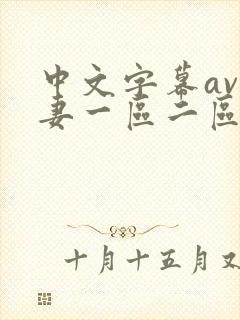 中文字幕av
妻一區二區
十月十五月又